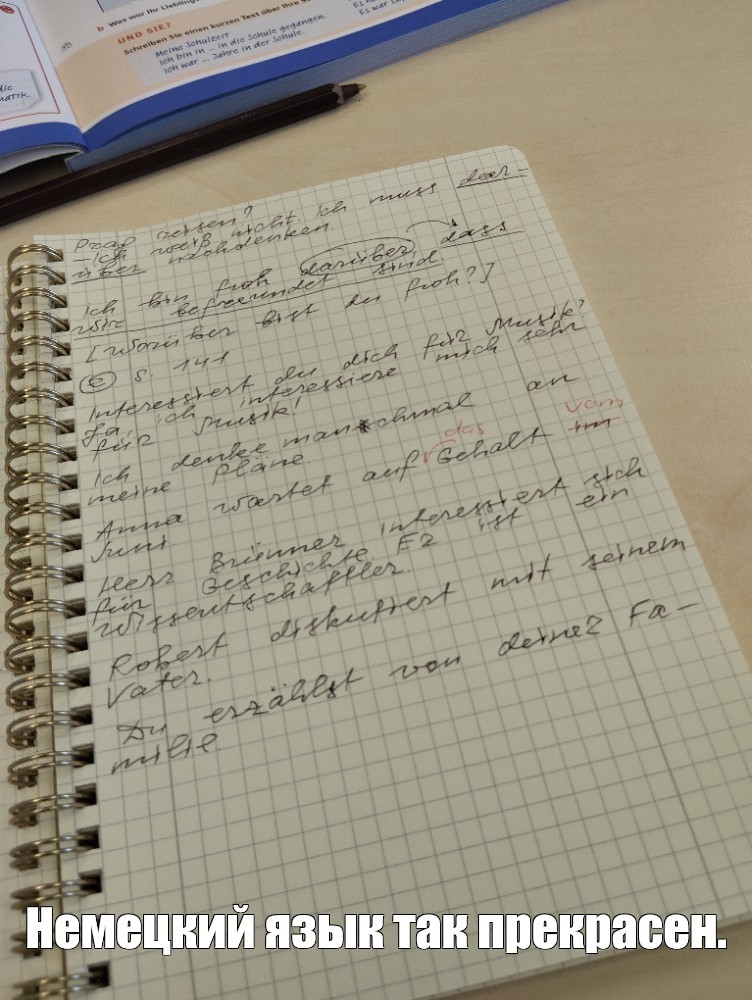 b Was war Ihr Lieblings
UND SIE?
Schreiben Sie einen kurzen Text über Ihre
Meine Schulzeit
Ich bin in ... in die Schule gegangen.
Ich war ... Jahre in der Schule.
Es war
Prag reisen?
- Ich weiß nicht. Ich muss dar-
über nachdenken.
Ich bin froh darüber dass
wir befreundet sind.
[Worüber bist du froh?]
S. 141
Interessiert du dich für Musik?
Ja, ich interessiere mich sehr
für Musik!
Ich denke manchmal an
meine Pläne.
das vom
Anna wartet auf Gehalt im
Juni.
Herr Brünner interessiert sich
für Geschichte Er ist ein
Wissentschaftler.
Robert diskutiert mit seinem
Vater.
Du erzählst von deiner Fa-
milie.
Немецкий язык так прекрасен.